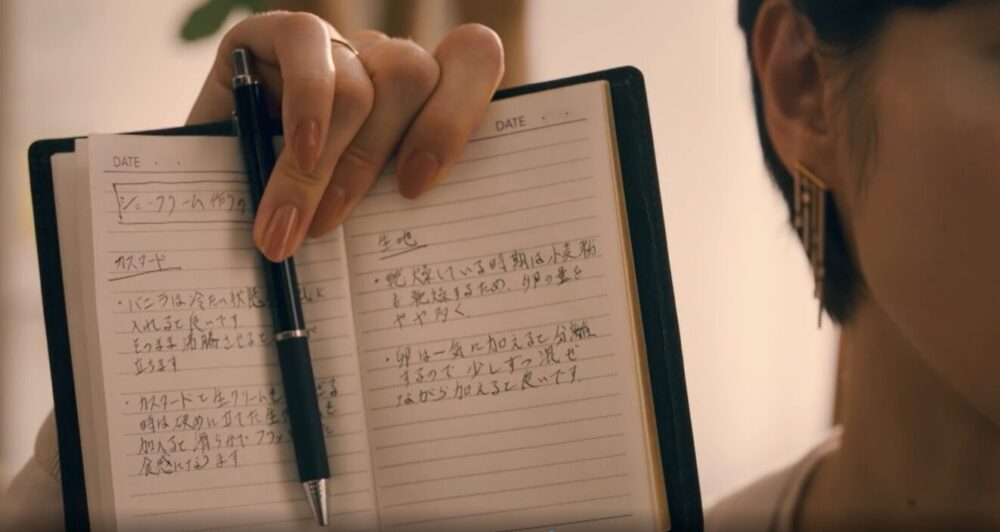 DATE
シュークリーム作りの
カスタード
・バニラは冷たい状態
入れると良いです
そのまま沸騰させると
立ちます
・カスタードと生クリームを る
時は硬めに立てた生ク を
加えると滑らかでフワッ
食感になります
DATE
生地
・乾燥している時期は小麦粉
も乾燥するため、卵の量を
やや多く
・卵は一気に加えると分離
するので少しずつ混ぜ
ながら加えると良いです